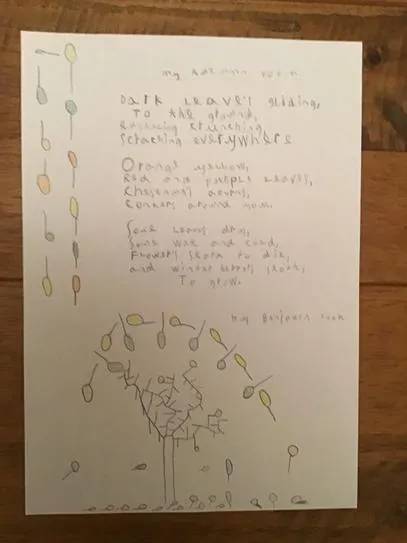 my Autumn Poem
Dark Leave's gliding,
To the ground,
crunching,
everywhere
Orange yellow,
Red and purple Leaves,
acorns,
Conkers around now.
Some Leaves dry,
Some wet and cold,
Flowers start to die,
and winter start,
To grow.
by Benjamin